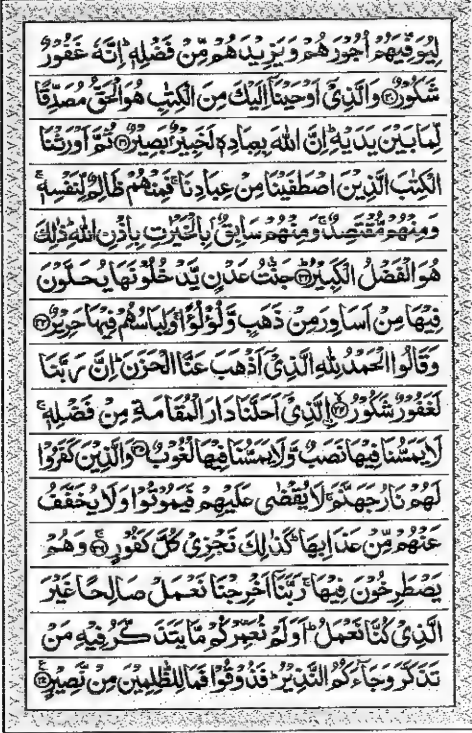 لِيُوَفِّيَهُمْ اُجُوْرَهُمْ وَيَزِيْدَهُمْ مِّنْ فَضْلِهٖ ؕ اِنَّهٗ غَفُوْرٌ
شَكُوْرٌ ﴿۳۰﴾ وَالَّذِيْۤ اَوْحَيْنَاۤ اِلَيْكَ مِنَ الْكِتٰبِ هُوَ الْحَقُّ مُصَدِّقًا
لِّمَا بَيْنَ يَدَيْهِ ؕ اِنَّ اللّٰهَ بِعِبَادِهٖ لَخَبِيْرٌۢ بَصِيْرٌ ﴿۳۱﴾ ثُمَّ اَوْرَثْنَا
الْكِتٰبَ الَّذِيْنَ اصْطَفَيْنَا مِنْ عِبَادِنَا ۚ فَمِنْهُمْ ظَالِمٌ لِّنَفْسِهٖ ۚ
وَمِنْهُمْ مُّقْتَصِدٌ ۚ وَمِنْهُمْ سَابِقٌۢ بِالْخَيْرٰتِ بِاِذْنِ اللّٰهِ ؕ ذٰلِكَ
هُوَ الْفَضْلُ الْكَبِيْرُ ﴿۳۲﴾ جَنّٰتُ عَدْنٍ يَّدْخُلُوْنَهَا يُحَلَّوْنَ
فِيْهَا مِنْ اَسَاوِرَ مِنْ ذَهَبٍ وَّلُؤْلُؤًا ۚ وَلِبَاسُهُمْ فِيْهَا حَرِيْرٌ ﴿۳۳﴾
وَقَالُوا الْحَمْدُ لِلّٰهِ الَّذِيْۤ اَذْهَبَ عَنَّا الْحَزَنَ ؕ اِنَّ رَبَّنَا
لَغَفُوْرٌ شَكُوْرُ ﴿۳۴﴾ اِۨلَّذِيْۤ اَحَلَّنَا دَارَ الْمُقَامَةِ مِنْ فَضْلِهٖ ۚ
لَا يَمَسُّنَا فِيْهَا نَصَبٌ وَّلَا يَمَسُّنَا فِيْهَا لُغُوْبٌ ﴿۳۵﴾ وَالَّذِيْنَ كَفَرُوْا
لَهُمْ نَارُ جَهَنَّمَ ۚ لَا يُقْضٰى عَلَيْهِمْ فَيَمُوْتُوْا وَلَا يُخَفَّفُ
عَنْهُمْ مِّنْ عَذَابِهَا ؕ كَذٰلِكَ نَجْزِيْ كُلَّ كَفُوْرٍ ﴿۳۶﴾ وَهُمْ
يَصْطَرِخُوْنَ فِيْهَا ۚ رَبَّنَاۤ اَخْرِجْنَا نَعْمَلْ صَالِحًا غَيْرَ
الَّذِيْ كُنَّا نَعْمَلُ ؕ اَوَلَمْ نُعَمِّرْكُمْ مَّا يَتَذَكَّرُ فِيْهِ مَنْ
تَذَكَّرَ وَجَآءَكُمُ النَّذِيْرُ ؕ فَذُوْقُوْا فَمَا لِلظّٰلِمِيْنَ مِنْ نَّصِيْرٍ ﴿۳۷﴾